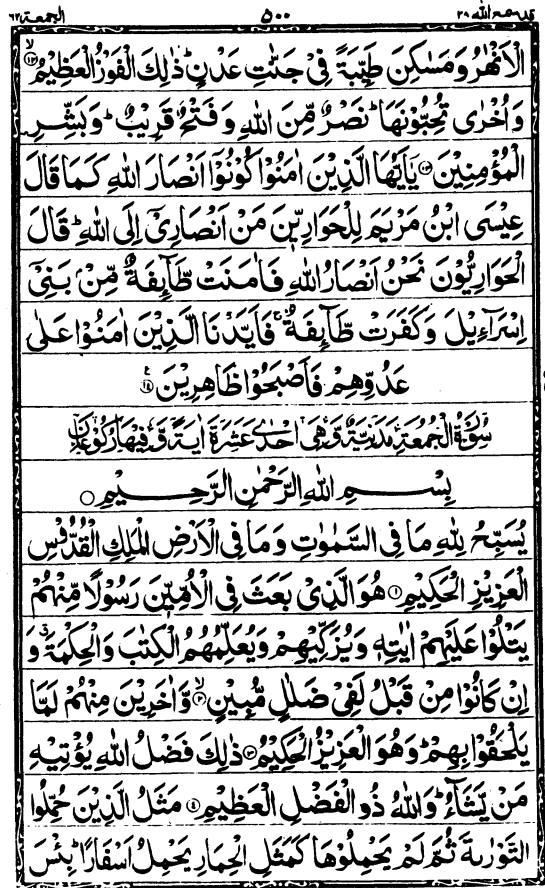 قد سمع الله ٢٨ ٥٠٠ الجمعة ٦٢
الْاَنْهٰرُ وَمَسٰكِنَ طَيِّبَةً فِیْ جَنّٰتِ عَدْنٍ ؕ ذٰلِكَ الْفَوْزُ الْعَظِیْمُ ۙ﴿۱۲﴾
وَ اُخْرٰی تُحِبُّوْنَهَا ؕ نَصْرٌ مِّنَ اللّٰهِ وَ فَتْحٌ قَرِیْبٌ ؕ وَ بَشِّرِ
الْمُؤْمِنِیْنَ ﴿۱۳﴾ یٰۤاَیُّهَا الَّذِیْنَ اٰمَنُوْا كُوْنُوْۤا اَنْصَارَ اللّٰهِ كَمَا قَالَ
عِیْسَی ابْنُ مَرْیَمَ لِلْحَوَارِیّٖنَ مَنْ اَنْصَارِیْۤ اِلَی اللّٰهِ ؕ قَالَ
الْحَوَارِیُّوْنَ نَحْنُ اَنْصَارُ اللّٰهِ فَاٰمَنَتْ طَّآىِٕفَةٌ مِّنْۢ بَنِیْۤ
اِسْرَآءِیْلَ وَ كَفَرَتْ طَّآىِٕفَةٌ ۚ فَاَیَّدْنَا الَّذِیْنَ اٰمَنُوْا عَلٰی
عَدُوِّهِمْ فَاَصْبَحُوْا ظَاهِرِیْنَ ﴿۱۴﴾
سُوْرَةُ الْجُمُعَةِ مَدَنِیَّةٌ وَّهِیَ اِحْدٰی عَشَرَةَ اٰیَةً وَّفِیْهَا رُكُوْعَانِ
بِسْمِ اللّٰهِ الرَّحْمٰنِ الرَّحِیْمِ ○
یُسَبِّحُ لِلّٰهِ مَا فِی السَّمٰوٰتِ وَ مَا فِی الْاَرْضِ الْمَلِكِ الْقُدُّوْسِ
الْعَزِیْزِ الْحَكِیْمِ ﴿۱﴾ هُوَ الَّذِیْ بَعَثَ فِی الْاُمِّیّٖنَ رَسُوْلًا مِّنْهُمْ
یَتْلُوْا عَلَیْهِمْ اٰیٰتِهٖ وَ یُزَكِّیْهِمْ وَ یُعَلِّمُهُمُ الْكِتٰبَ وَ الْحِكْمَةَ ۗ وَ
اِنْ كَانُوْا مِنْ قَبْلُ لَفِیْ ضَلٰلٍ مُّبِیْنٍ ۙ﴿۲﴾ وَّ اٰخَرِیْنَ مِنْهُمْ لَمَّا
یَلْحَقُوْا بِهِمْ ؕ وَ هُوَ الْعَزِیْزُ الْحَكِیْمُ ﴿۳﴾ ذٰلِكَ فَضْلُ اللّٰهِ یُؤْتِیْهِ
مَنْ یَّشَآءُ ؕ وَ اللّٰهُ ذُو الْفَضْلِ الْعَظِیْمِ ﴿۴﴾ مَثَلُ الَّذِیْنَ حُمِّلُوا
التَّوْرٰىةَ ثُمَّ لَمْ یَحْمِلُوْهَا كَمَثَلِ الْحِمَارِ یَحْمِلُ اَسْفَارًا ؕ بِئْسَ